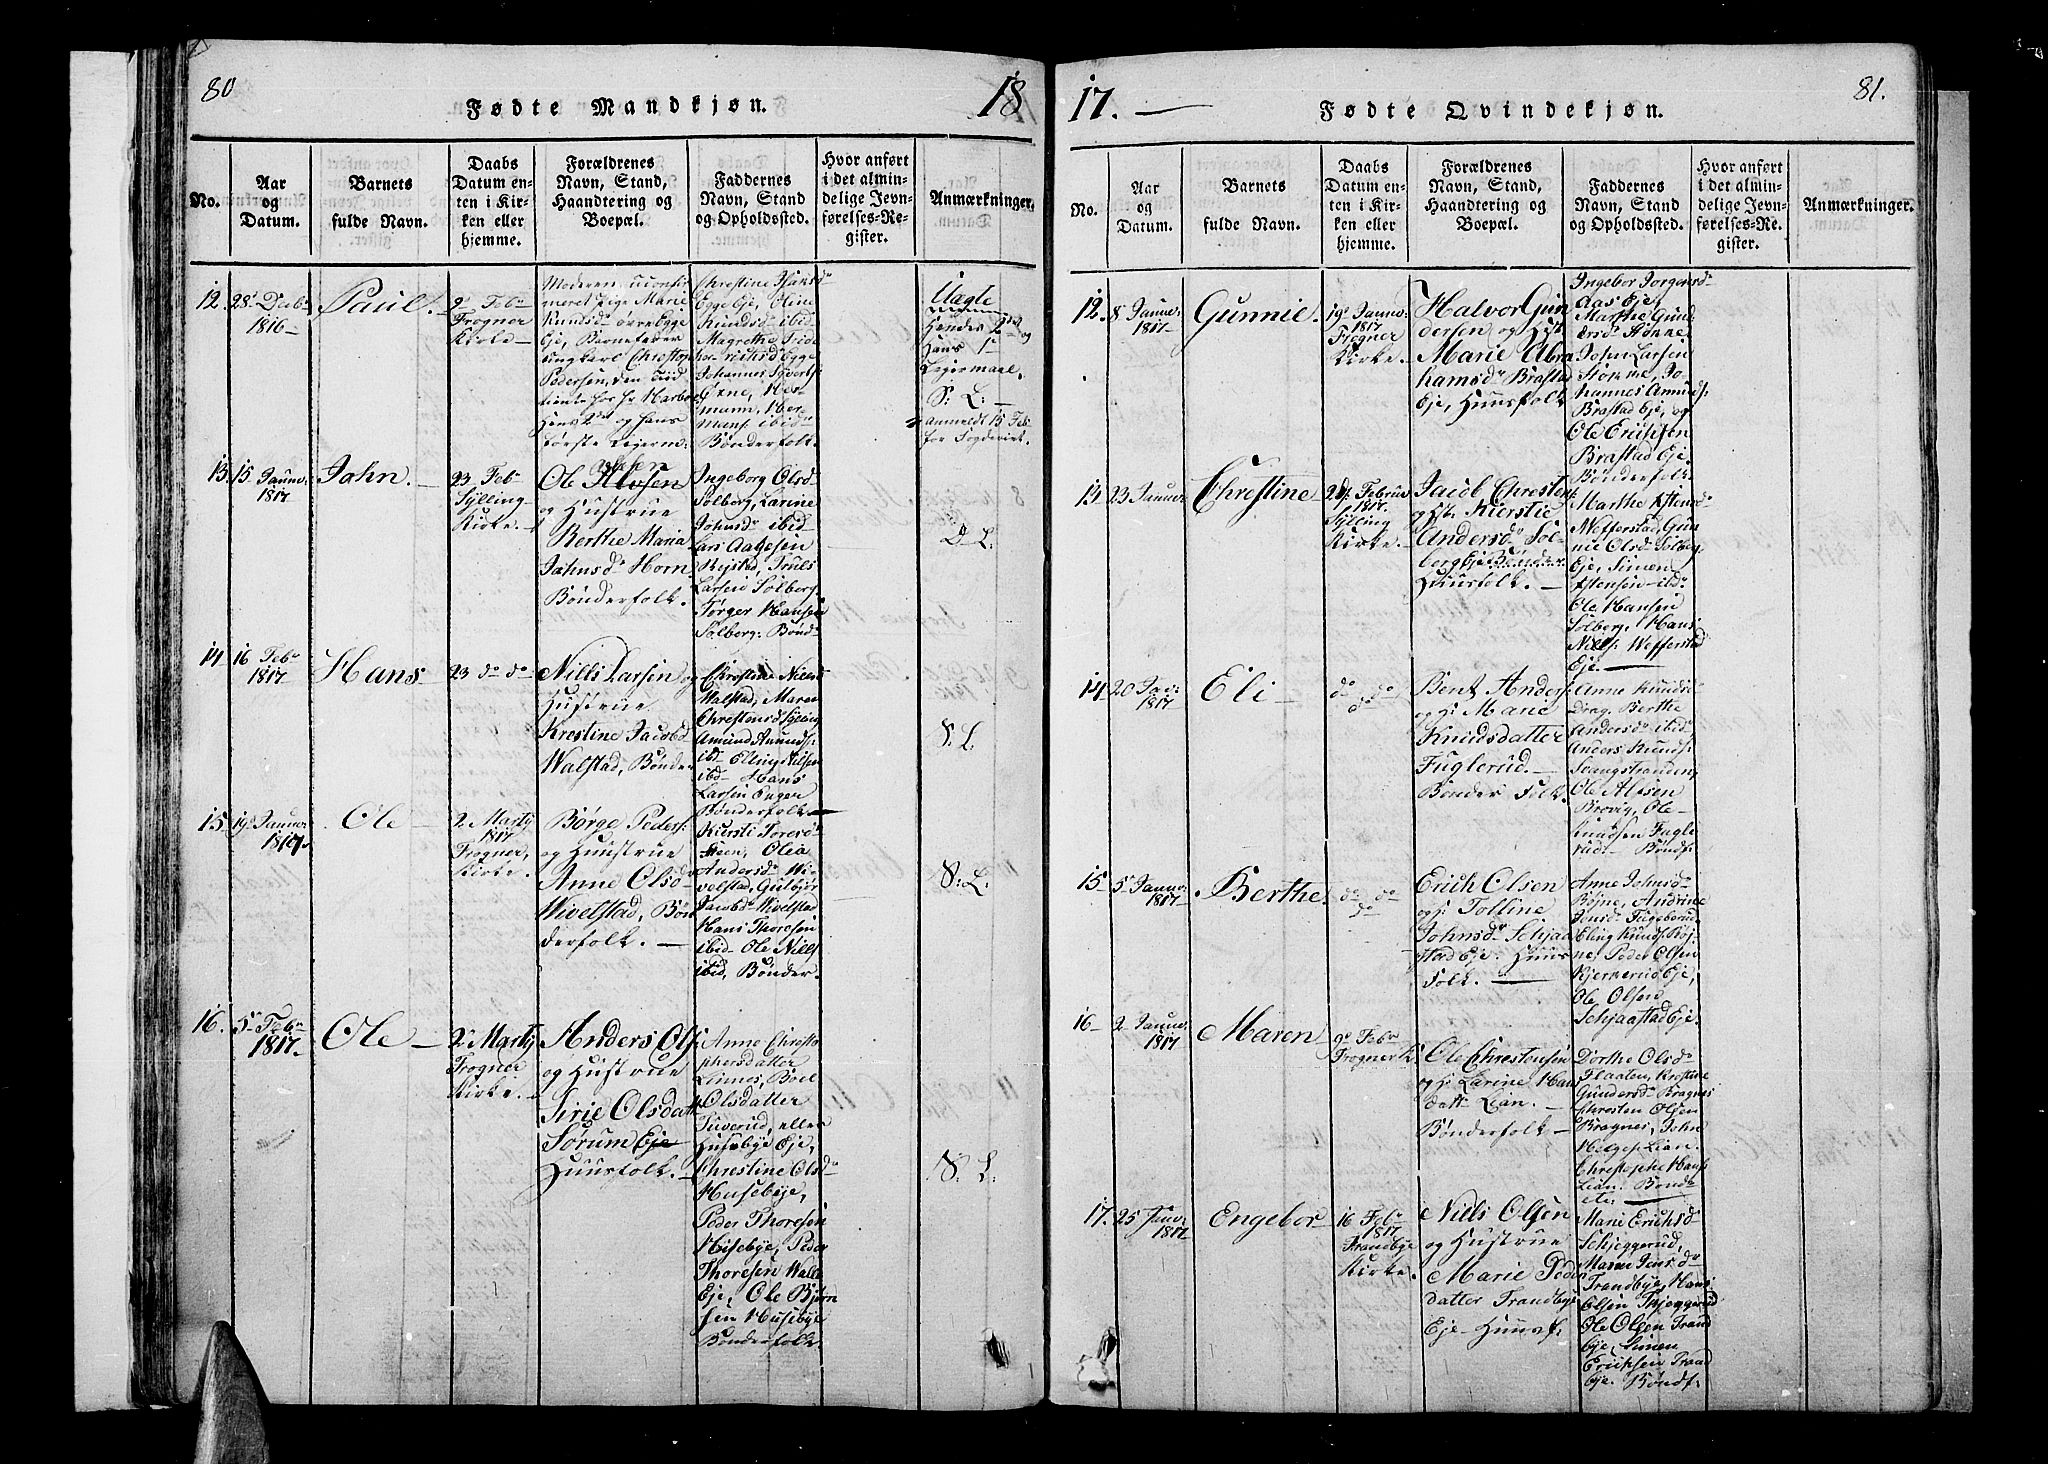 80
Fødte Mandkjøn.
18
No.
Aar
og
Datum.
Barnets
fulde Navn.
Daabs
Datum en-
ten i Kir-
ken eller
hjemme.
Forældrenes
Navn, Stand,
Haandtering og
Boepæl.
Faddernes
Navn, Stand
og Opholdssted.
Hvor anført
i det almin-
delige Jevn-
førelses-Re-
gister.
Anmærkninger.
12.
28 Decb
1816
Paul.
2 Feb
Frogner
Kirke
Moderen uconfir
meret Pige Marie
Knudsd øvre Egge
Eje, Barnefader
ungkarl Christoph
Pedersen, den Tiid
tiente hos
Hens 2den og Hans
første Leierm
Christine Hansd
Egge Eje, Oline
Knudsd ibid
Magrethe Fride
richsd Egge
Johannes Syverts
Herman
ibid
Bønderfolk.
Uægte
Hendes 2den og
Hans 1ste
Leiermaal.
S: L:
Anmeldt 15 Feb
for Fogderiet.
13.
15 Januar
1817
John.
23 Feb
Sylling
Kirke.
Ole Olsen
og Hustrue
Berthe Maria
Johnsd Horn
Bønderfolk.
Ingeborg Olsd
Solberg, Larine
Johnsd ibid
Lars Aagesen
Rejstad, Truls
Larsen Solberg
Torger Hansen
Solberg: Bønd
D L:
14
16 Feb
1817
Hans
23 do do
Niels Larsen og
Hustrue
Krestine Jacobd
Walstad, Bønder
Christine Nielsd
Walstad, Maren
Christensd Sylling
Amund Amunds:
ibd Elling Nilsen
ibd Hans
Larsen Enger
Bønderfolk
S: L:
15
19 Januar
1817.
Ole
2 Martj
1817
Frogner
Kirke.
Børge Peders:
og Huustrue
Anne Olsd
Wivelstad, Bøn
derfolk.
Kiersti Toresd
Steen, Olea
Andersd Wi
velstad, Gulbjør
Jacobsd Wivelstad
Hans Thoresen
ibid Ole Niels
ibid, Bønder.
S: L:
16.
5 Feb
1817.
Ole
2 Martj
Frogner
Kirke.
Anders Ols
og Hustrue
Sirie Olsdatt
Sørum Eje
Huusfolk.
Anne Christo
phersdatter
Linnes, Boel
Olsdatter
Siverud, eller
Husebye Eje,
Christine Olsd
Husebye,
Peder Thoresen
Husebye, Peder
Thoresen Wall
Eje, Ole Bjørn
sen Husebye
Bønderfolk.
S: L:
17.
Fødte Qvindekjøn.
81.
No.
Aar
og
Datum.
Barnets
fulde Navn.
Daabs
Datum en-
ten i Kir-
ken eller
hjemme.
Forældrenes
Navn, Stand,
Haandtering og
Boepæl.
Faddernes
Navn, Stand
og Opholdssted.
Hvor anført
i det almin-
delige Jevn-
førelses-Re-
gister.
Anmærkninger.
12.
8 Januar
1817
Gunnie.
19 Janu
1817
Frogner
Kirke
Halvor Gun
dersen og Hst
Marie Abra
hamsd Brastad
Eje, Huusfolk
Ingebor Jorgensd
Aas Eje,
Marthe Gund
ersd Stønne
John Larsen
Stønne, Jo
hannes Amunds:
Brastad Eje, og
Ole Erichsen
Brastad Eje.
Bønderfolk
13
23 Januar
Christine
2 Februar
1817.
Sylling
Kirke
Jacob Christens:
og H: Kierstie
Andersd Sol
berg Eje Bønder
Huusfolk.
Marthe Estensd
Wefferstad, Gun
nie Olsd Solberg
Eje, Simen
Estensen ibd
Ole Hansen
Solberg, Hans
Niels: Wefferstad
Eje
14
20 Jan
1817
Eli
do do
do
Bent Anders
og H: Marie
Knudsdatter
Fuglerud.
Bønder Folk
Anne Knudsd
Drag, Berthe
Andersd ibid
Anders Knuds:
Svangstranden,
Ole Alfsen
Brovig, Ole
Knudsen Fugle
rud. Bøndf:
15
5 Januar
1817
Berthe.
do do
do
Erich Olsen
og H: Tolline
Johnsd Schjaa
stad Eje Huus
Folk.
Anne Johnsd
Bøjne, Andrine
Jonsd Fugerud
Eling Knuds: Bøj
ne, Peder Olsen
Kjerkerud Eje,
Ole Olsen
Schjaastad Eje.
16
2 Januar
1817
Maren
9 Feb
Frogner K:
Ole Christensen
og H: Larine Hans
datt Lian.
Bønderfolk
Dorthe Olsd
Flaaten, Kirstine
Gundersd Bragnes
Christen Olsen
Bragnes, John
Helges: Lian.
Christophe Hans:
Lian. Bønd
etc:
17.
25 Janu
1817
Engebor
16 Feb
1817
Trandbye
Kirke.
Niels Olsen
og Hustrue
Marie Peder
datter Trandbye
Eje Huusf:
Marie Erichsd
Schjeggerud,
Maren Jensd
Trandbye, Hans
Olsen Schjeggerud
Ole Olsen Trand
Eje, Simen
Eriksen Trand
Eje. Bøndf.